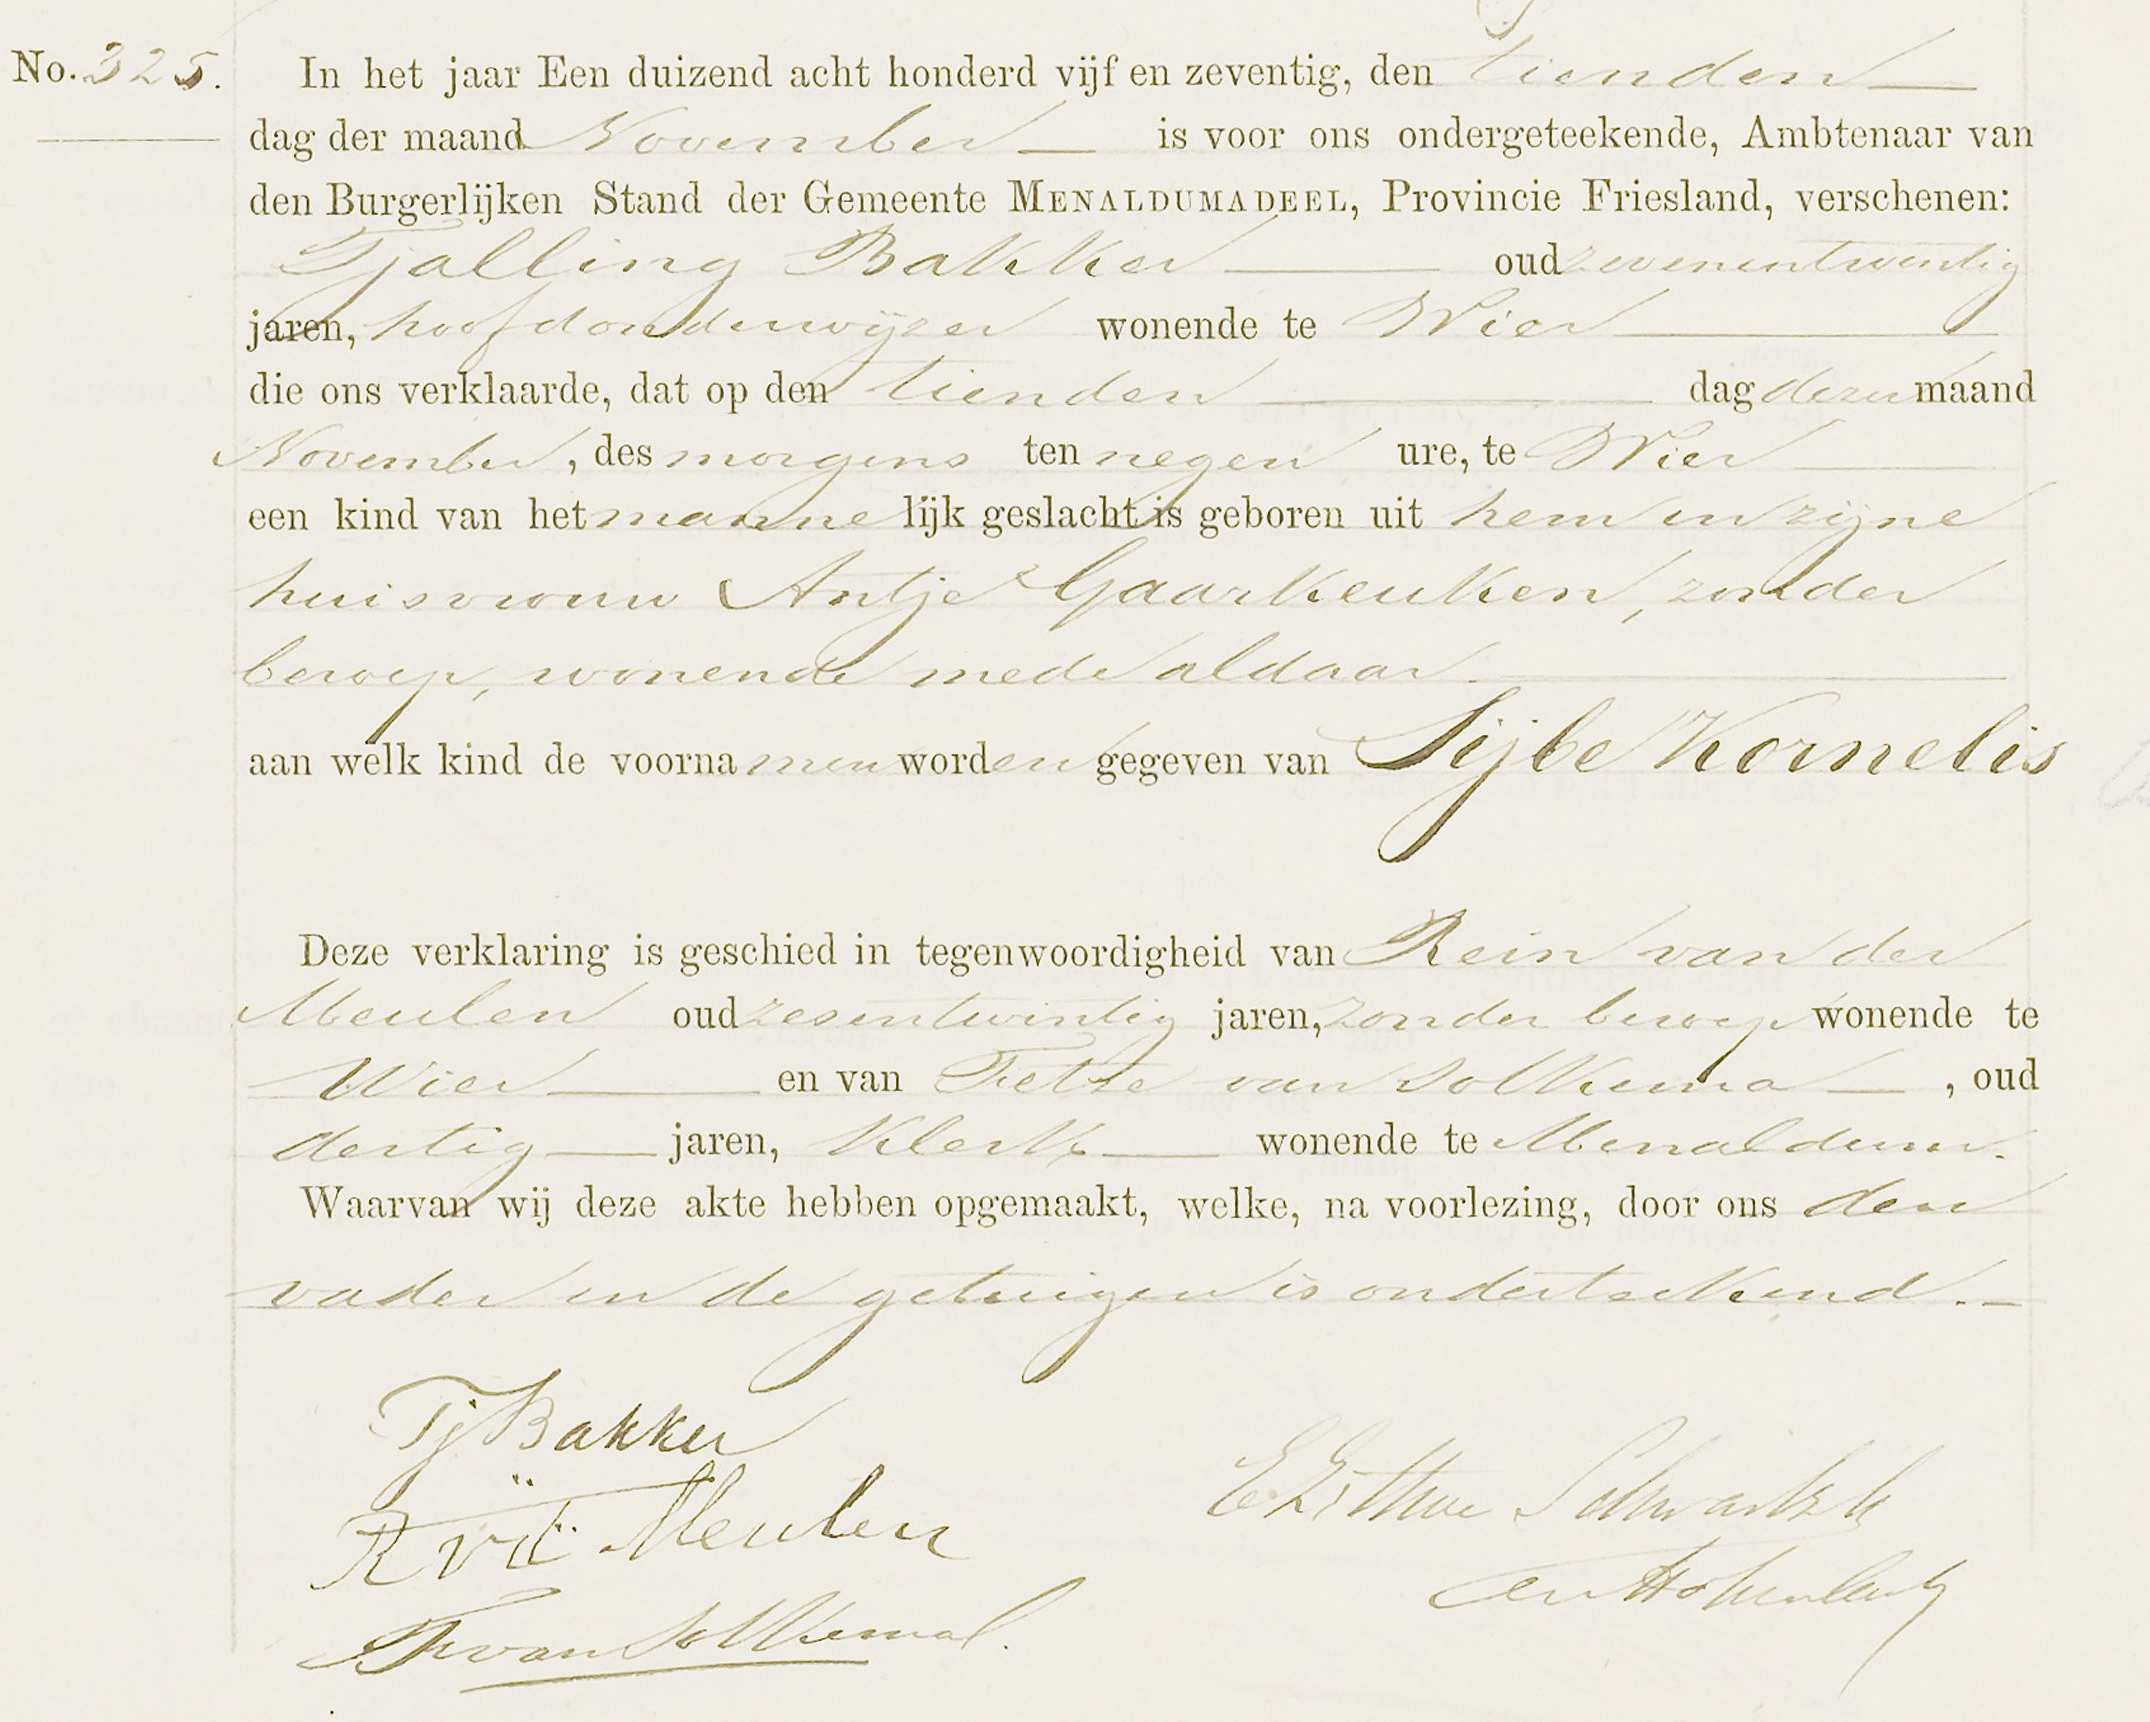 No. 325. In het jaar Een duizend acht honderd vijf en zeventig, den tienden
dag der maand November is voor ons ondergeteekende, Ambtenaar van
den Burgerlijken Stand der Gemeente MENALDUMADEEL, Provincie Friesland, verschenen:
Tjalling Bakker oud zevenentwintig
jaren, hoofdonderwijzer wonende te Wier
die ons verklaarde, dat op den tienden dag dezer maand
November, des morgens ten negen ure, te Wier
een kind van het mannelijk geslacht is geboren uit hem en zijne
huisvrouw Antje Gaarkeuken, zonder
beroep, wonende mede aldaar.
aan welk kind de voornamen worden gegeven van Sijbe Kornelis
Deze verklaring is geschied in tegenwoordigheid van Rein van der
Meulen oud zesentwintig jaren, zonder beroep wonende te
Wier en van Fetze van Solkema, oud
dertig jaren, Klerk wonende te Menaldum.
Waarvan wij deze akte hebben opgemaakt, welke, na voorlezing, door ons den
vader en de getuigen is onderteekend.
Tj Bakker
R vd Meulen
F van Solkema